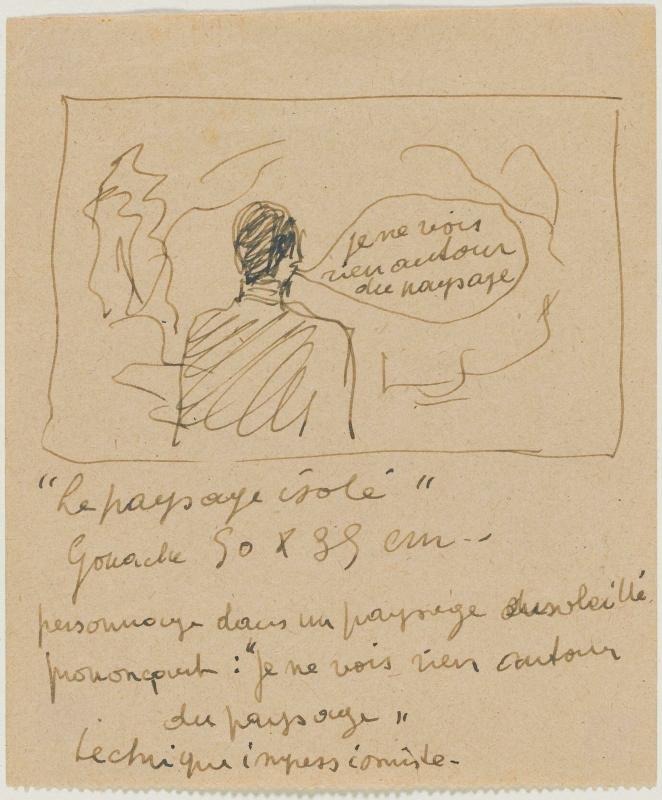 je ne vois
rien autour
du paysage
"Le paysage isolé"
Gouache 50 X 39 cm--
personnage dans un paysage ensoleillé
prononçant : "Je ne vois rien autour
du paysage"
technique impressioniste-